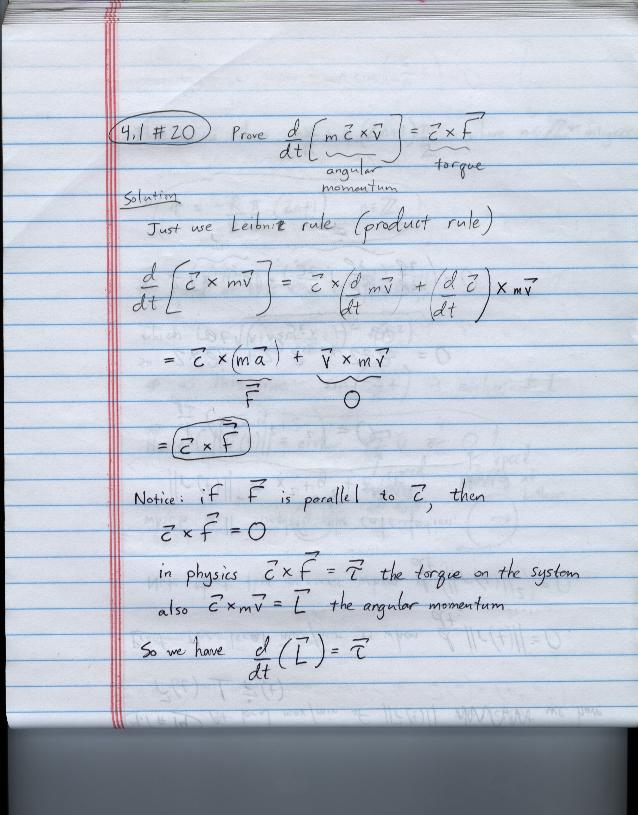 4.1 #20 Prove d/dt [m c⃗ × v⃗] = c⃗ × F⃗
angular momentum torque
Solution
Just use Leibniz rule (product rule)
d/dt [c⃗ × mv⃗] = c⃗ × (d/dt mv⃗) + (d/dt c⃗) × mv⃗
= c⃗ × (ma⃗) + v⃗ × mv⃗
F⃗ 0
= c⃗ × F⃗
Notice: if F⃗ is parallel to c⃗, then
c⃗ × F⃗ = 0
in physics c⃗ × F⃗ = τ⃗ the torque on the system
also c⃗ × mv⃗ = L⃗ the angular momentum
So we have d/dt (L⃗) = τ⃗